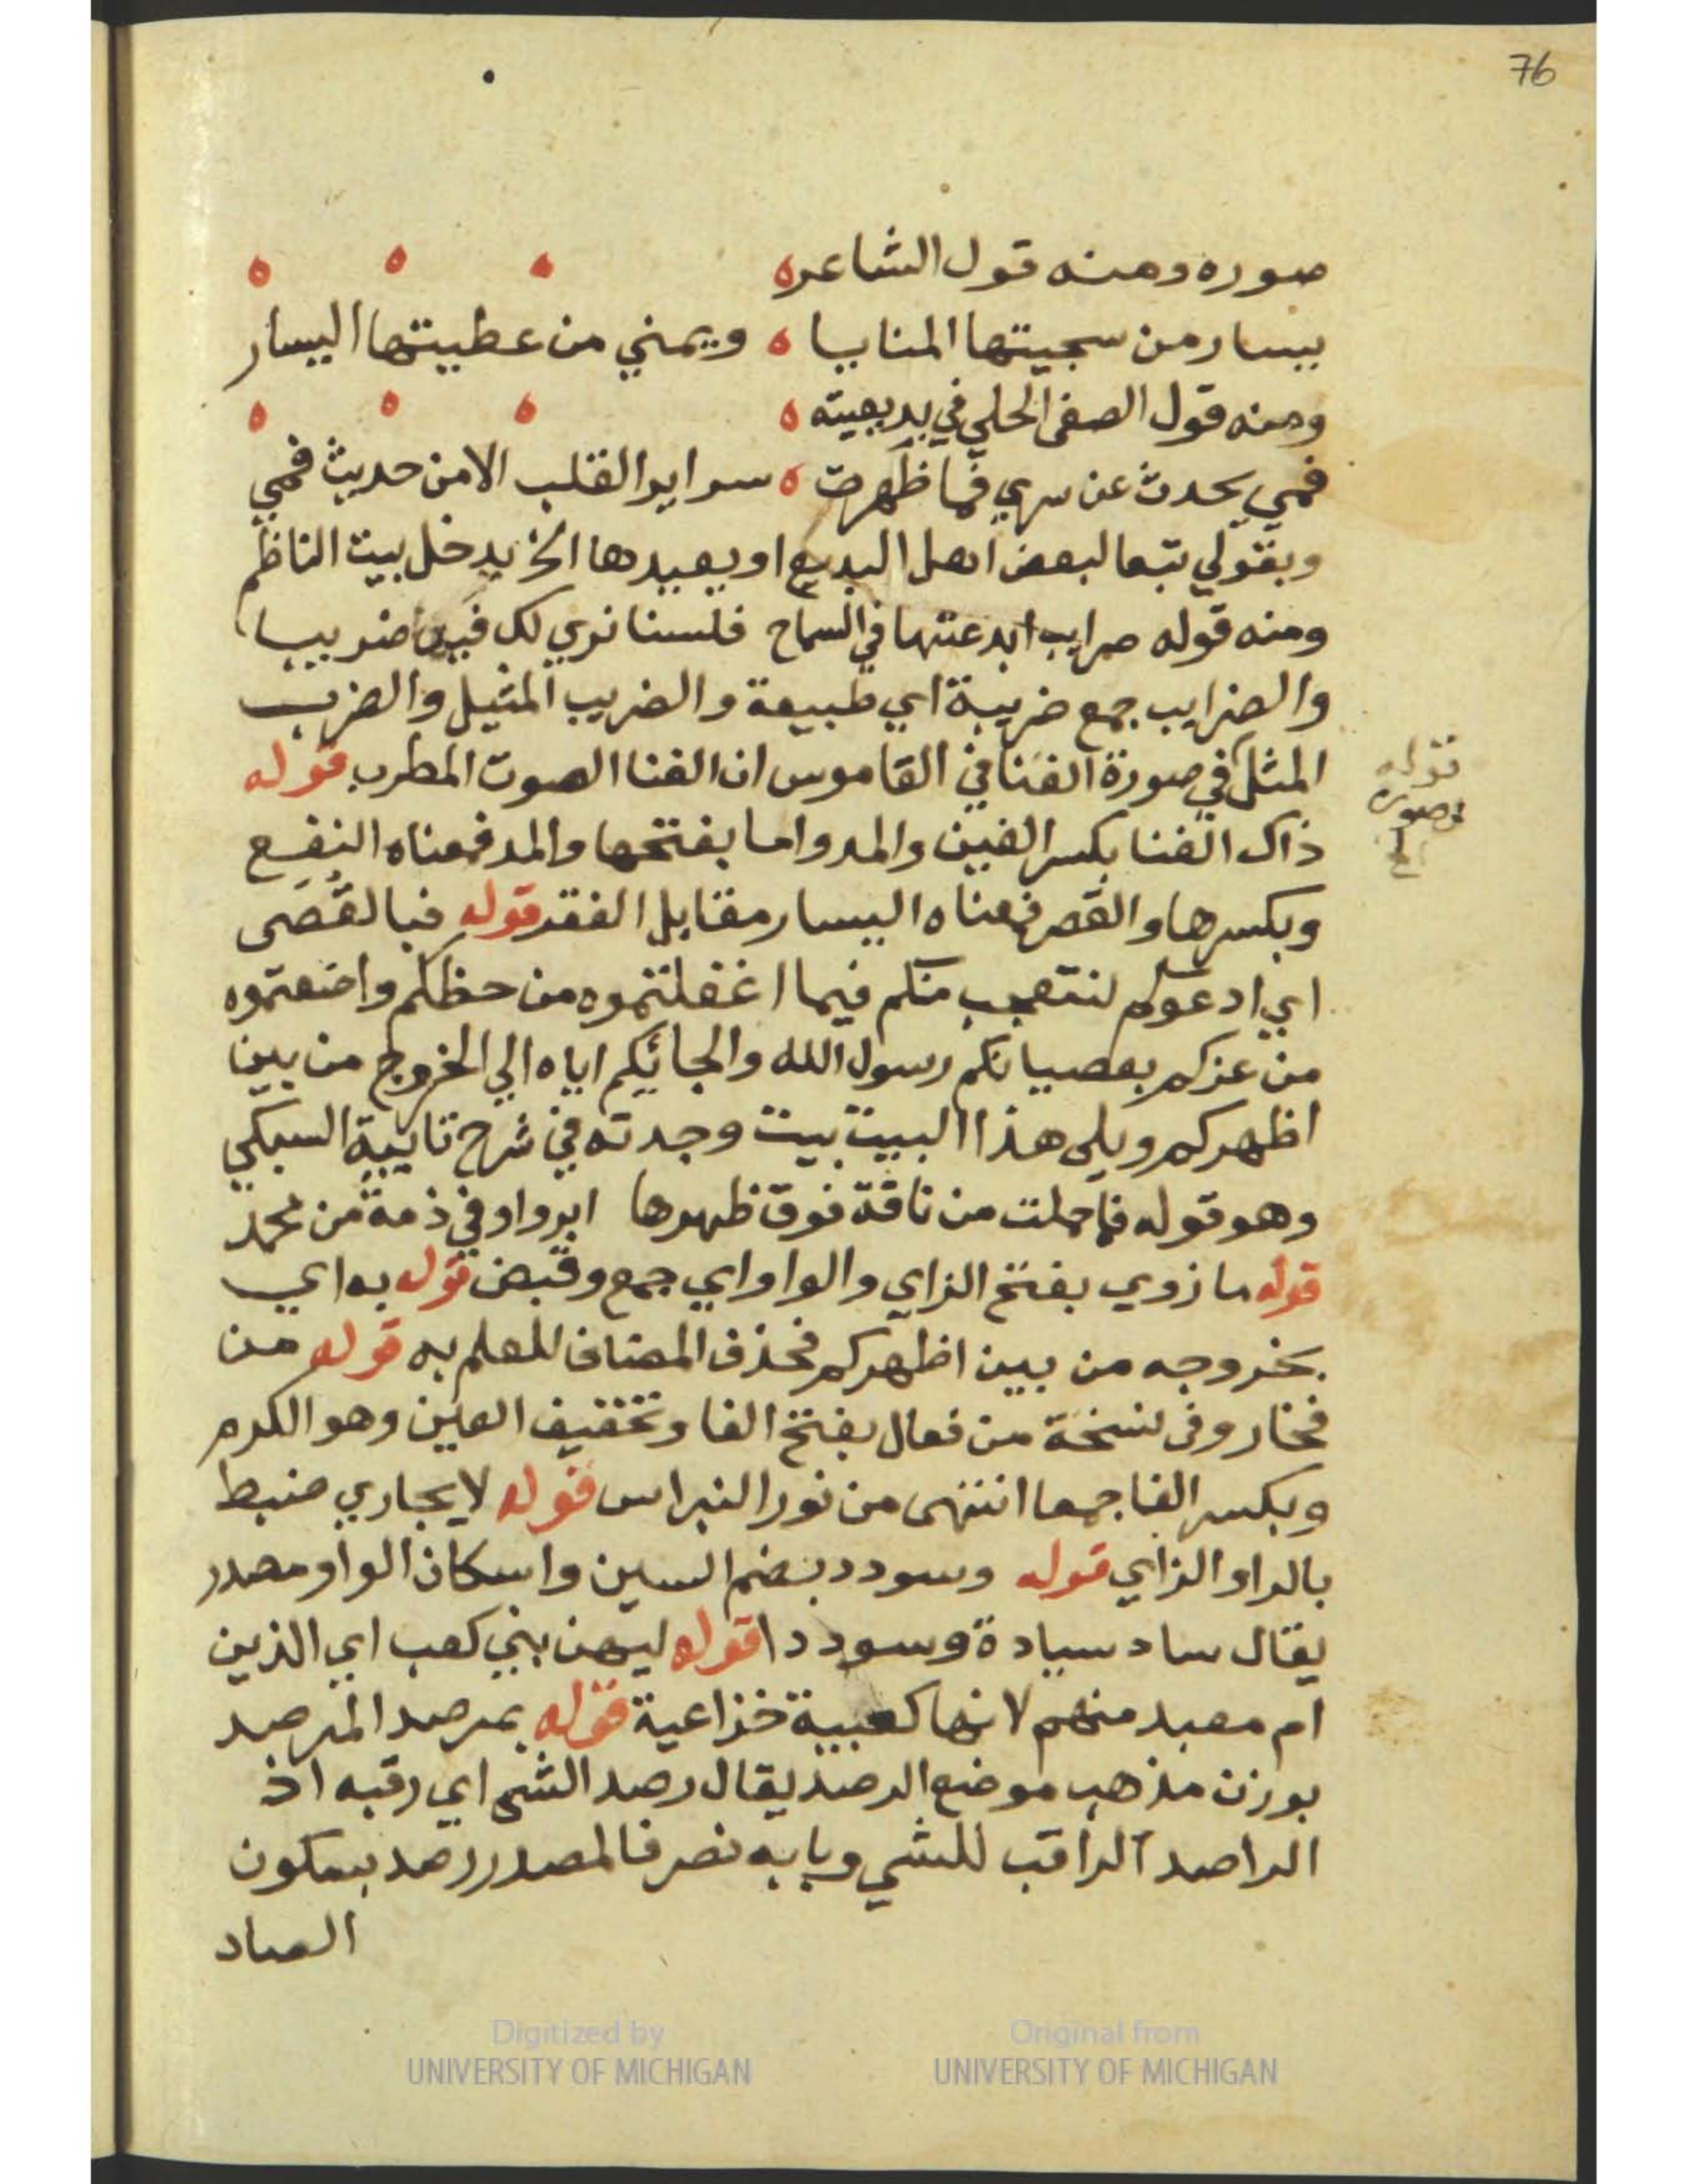 76
صوره ومنه قول الشاعر ه
بيسار من سجيتها المنايا ه ويمني من عطيتها اليسار
ومنه قول الصفي الحلي في بديعيته ه
فمي يحدث عن سري فما ظهرت ه سراير القلب الا من حديث فمي
وبقولي تبعا لبعض اهل البديع او يعيدها الخ يدخل بيت الناظم
ومنه قوله ضرايب ابدعتها في السماح فلسنا نري لك فيها ضريبا
والضرايب جمع ضريبة اي طبيعة والضريب المثيل والضرب
المثل في صورة الغنا في القاموس ان الغنا الصوت المطرب قوله
قوله
في صورة
الخ
ذاك الغنا بكسر الغين والمد واما بفتحها والمد فمعناه النفع
وبكسرها والقصر فمعناه اليسار مقابل الفقر قوله فيا لقصي
اي ادعوكم لنتعجب منكم فيما اغفلتموه من حظكم واضعتموه
من عزكم بعصيانكم رسول الله والجائكم اياه الي الخروج من بين
اظهركم ويلي هذا البيت بيت وجدته في شرح تايية السبكي
وهو قوله فما حملت من ناقة فوق ظهرها ابر واوفي ذمة من محمد
قوله ما زوي بفتح الزاي والواو اي جمع وقبض قوله به اي
بخروجه من بين اظهركم فحذف المضاف للعلم به قوله من
فخار وفي نسخة من فعال بفتح الفا وتخفيف العين وهو الكرم
وبكسر الفا جمعا انتهى من نور النبراس قوله لا يجاري ضبط
بالرا والزاي قوله وسودد بضم السين واسكان الواو مصدر
يقال ساد سيادة وسوددا قوله ليهن بني كعب اي الذين
ام معبد منهم لانها كعبية خزاعية قوله بمرصد المرصد
بوزن مذهب موضع الرصد يقال رصد الشي اي رقبه اذ
الراصد الراقب للشي وبابه نصر فالمصدر رصد بسكون
الصاد
Digitized by
UNIVERSITY OF MICHIGAN
Original from
UNIVERSITY OF MICHIGAN